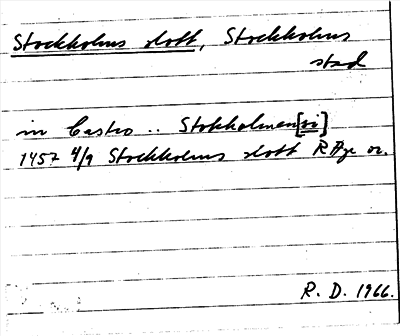 Stockholms slott, Stockholms
stad
in Castro .. Stokholmen[si]
1457 4/9 Stockholms slott RAp or.
R. D. 1966.